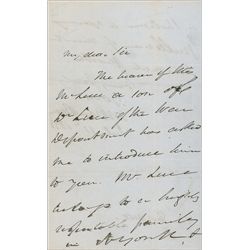 My dear Sir
The bearer of this
Mr Luce a son of
Dr Luce of the War
Department has asked
me to introduce him
to you. Mr Luce
belongs to a highly
respectable family
in